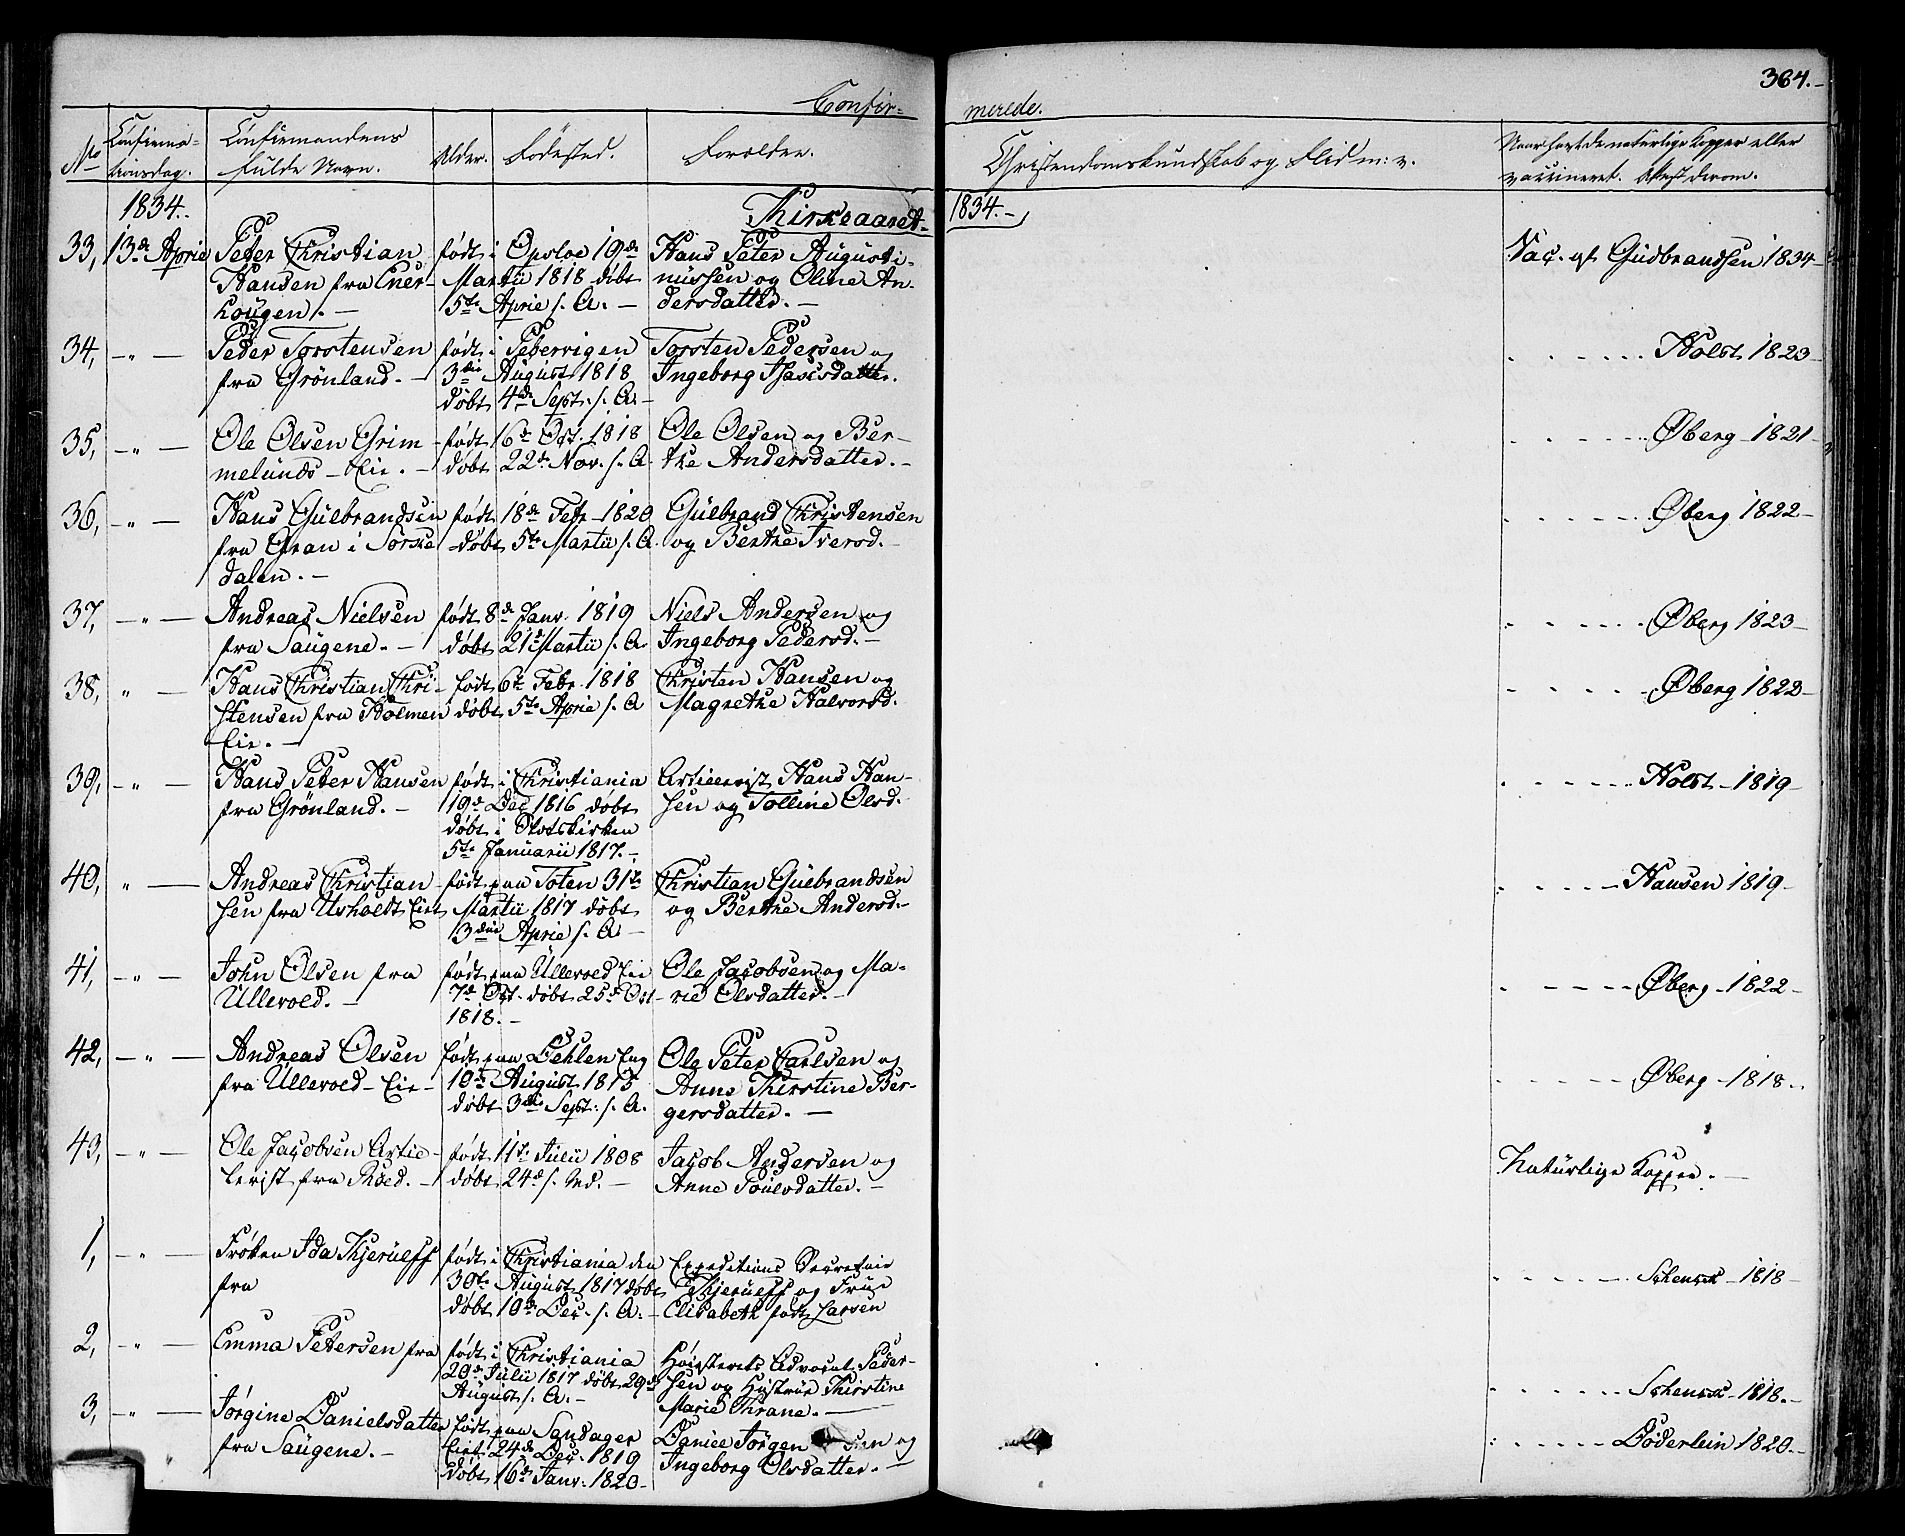 364.-
Confir-
merede.
No
Confirma-
tionsdag.
Confirmandens
fulde Navn.
Alder.
Fødested.
Forældre.
Christendomskundskab og Flid m: v.
Naar havt de naturlige Kopper eller
vaccineret. Attest derom.
1834.
Kirkeaaret
1834.-
33, 13de April Peter Christian født i Opsloe 19de Hans Peter Augusti-
Hansen fra Ener- Martii 1818 døbt nussen og Oline An-
hougen /.- 5te April s. A. - dersdatter. -
Vac. af Gudbrandsen 1834
34, -"- Peder Torstensen født i Pebervigen Torsten Pedersen og
fra Grønland. - 3die August 1818 Ingeborg datter.
døbt 4de Sept. s. A. -
Holst 1823
35, -"- Ole Olsen Grim- født 16de Oct. 1818 Ole Olsen og Ber-
melunds-Eie. - døbt 22de Nov. s. A. the Andersdatter. -
Øberg 1821
36, -"- Hans Gulbrandsen født 18de Febr. 1820 Gulbrand Christensen
fra Gran i Sørke- døbt 5te Martii s. A. og Berthe Iversd. -
dalen. -
Øberg 1822
37, -"- Andreas Nielsen født 8de Janv. 1819 Niels Andersen og
fra Saugene. - døbt 21de Martii s. A. Ingeborg Pedersd. -
Øberg 1823
38, " - Hans Christian Chri- født 6te Febr. 1818 Christen Hansen og
stensen fra Holmen døbt 5te April s. A. Magrethe Halvorsd.
Eie. -
Øberg 1822
39, -"- Hans Peter Hansen født i Christiania Artillerist Hans Han-
fra Grønland. - 19de Dec 1816 døbt sen og Tolline Olsd.
døbt i Slotskirken
5te Januarii 1817. -
Holst 1819
40, " - Andreas Christian- født paa Toten 31te Christian Gulbrandsen
sen fra Usholdt Eie Martii 1817 døbt og Berthe Andersd. -
3die April s. A. -
Hansen 1819
41, -"- John Olsen fra født paa Ullevold Eie Ole Jacobsen og Ma-
Ullevold. - 7de Oct. døbt 25de Oct rie Olsdatter. -
1818. -
Øberg 1822
42, -"- Andreas Olsen født paa Løkken Ole Peter Carlsen og
fra Ullevold-Eie- 10de August 1815 Anne Kirstine Ber-
døbt 3die Sept: s. A. gersdatter. -
Øberg 1818.
43, -"- Ole Jacobsen Artil- født 11te Julii 1808 Jacob Andersen og
lerist fra Røed. - døbt 24de s. Md. - Anne Poulsdatter. -
Naturlige Kopper. -
1, -"- Frøken Ida Kjerulff født i Christiania den Expeditions Secretair
fra 30te August 1817 døbt Kjerulff og Frue
døbt 10de Dec. s. A. - Elisabeth født Larsen
Schenck 1818
2, -"- Emma Petersen fra født i Christiania Høiesterets Advocat Peder-
20de Julii 1817 døbt 29de sen og Hustrue Kirstine
August s. A. - Marie Thrane. -
Schenck 1818. -
3, -"- Jørgine Danielsdatter født paa Sandager Daniel Jørgensen og
fra Saugene. - Eie. 24de Dec. 1819 Ingeborg Olsdatter. -
døbt 16de Janv. 1820
Døderlein 1820. -